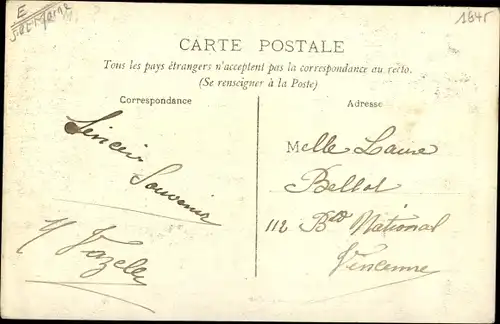 E
1845
CARTE POSTALE
Tous les pays étrangers n'acceptent pas la correspondance au recto.
(Se renseigner à la Poste)
Correspondance
Adresse
Sincèir
Souvenir
Melle Laure
Bellot
112 Bld National
Vincenne